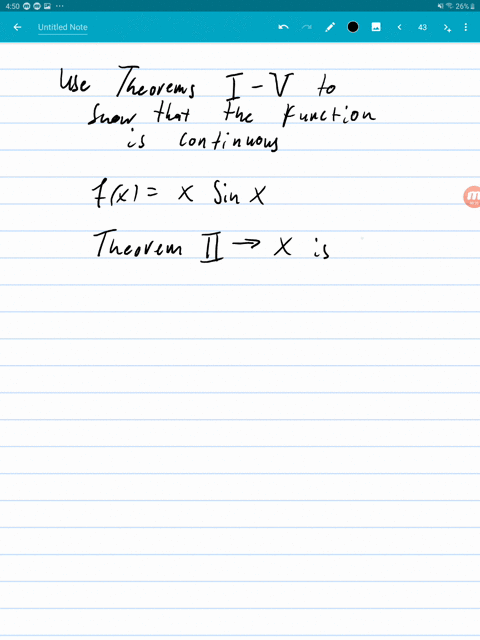 4:50
26%
Untitled Note
43
Use Theorems I - V to
show that the function
is continuous
f(x) = x Sin x
Theorem II → x is